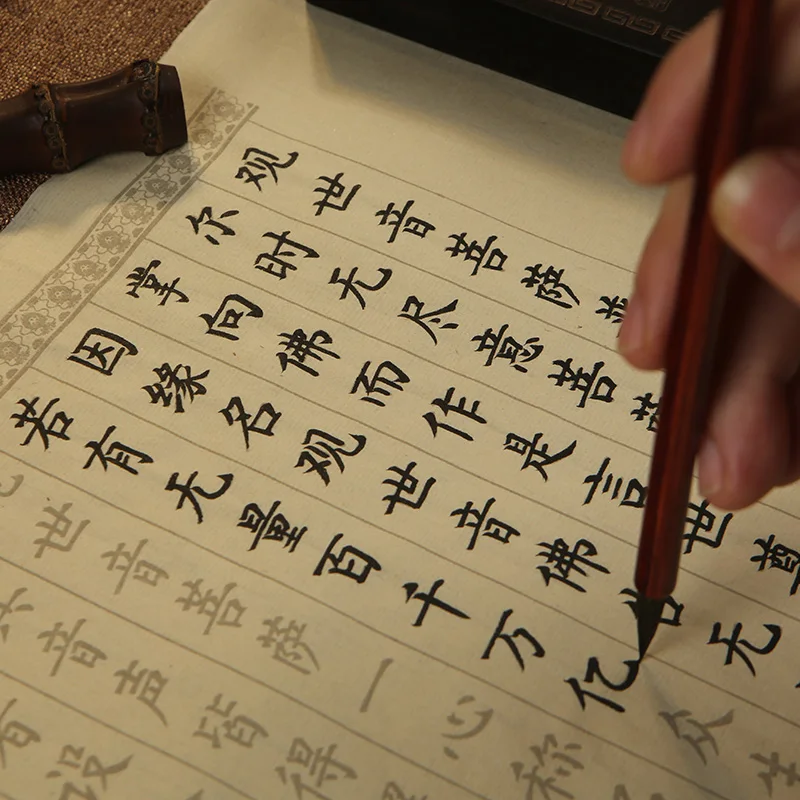 观世音菩萨普
尔时无尽意菩萨
掌向佛而作是言世尊
因緣名观世音佛告无
若有无量百千万亿众生
世音菩萨一心称
音声皆得
设